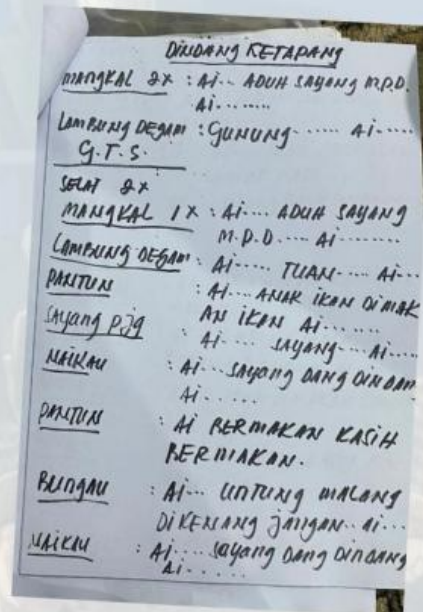 DINDANG KETAPANG
MANGKAL 2X : Ai... ADUH SAYANG M.P.D.
Ai........
LAMBUNG DEGAM : GUNUNG ..... Ai.....
G.T.S.
SELAT 2X
MANGKAL 1X : Ai.... ADUH SAYANG
M.P.D .... Ai........
LAMBUNG DEGAM : Ai..... TUAN..... Ai...
PANTUN : Ai.... ANAK IKAN DIMAK
AN IKAN Ai.......
SAYANG PJG : Ai.... SAYANG.... Ai.....
NAIKAU : Ai... SAYANG DANG DINDAN
Ai.....
PANTUN : Ai BERMAKAN KASIH
BERMAKAN.
BUNGAU : Ai... UNTUNG MALANG
DIKENANG JANGAN.. Ai...
NAIKAU : Ai.... SAYANG DANG DINDANG
Ai......